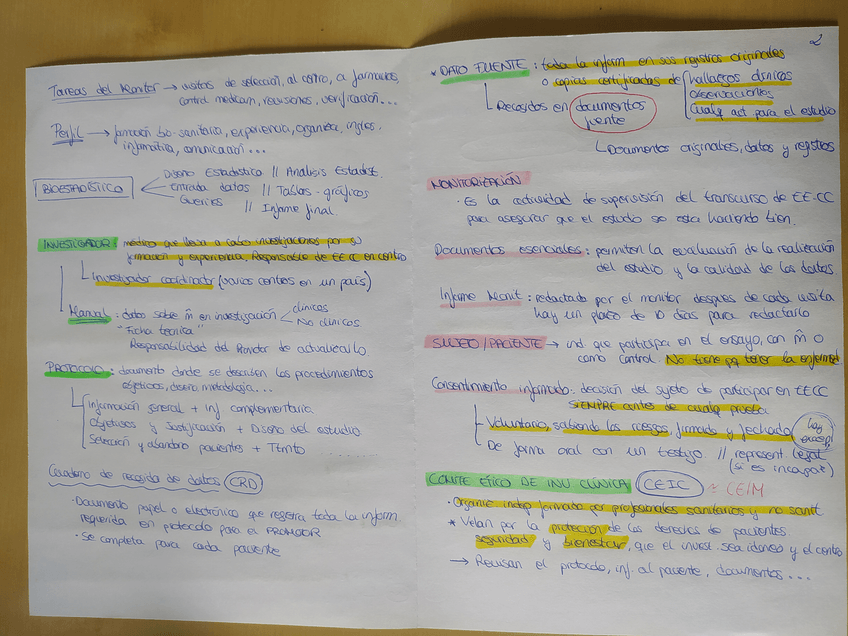 Tareas del Monitor → visitas de selección, al centro, a farmacia,
control medicam, revisiones, verificación...
Perfil → formación bio-sanitaria, experiencia, organiza, inglés,
informática, comunicación...
BIOESTADÍSTICO
Diseño Estadístico // Análisis Estadíst.
Entrada datos // Tablas-gráficos
Queries // Informe final.
INVESTIGADOR: médico que lleva a cabo investigaciones por su
formación y experiencia, Responsable de EECC en centro
Investigador coordinador (varios centros en un país)
Manual: datos sobre m̃ en investigación
clínicos
No clínicos
"Ficha técnica"
Responsabilidad del Promotor de actualizarlo
PROTOCOLO: documento donde se describen los procedimientos
objetivos, diseño, metodología...
Información general + inf complementaria.
Objetivos y Justificación + Diseño del estudio
Selección y abandono pacientes + Ttmto
Cuaderno de recogida de datos CRD
· Documento papel o electrónico que registra toda la inform.
requerida en protocolo para el PROMOTOR
· Se completa para cada paciente
2
* DATO FUENTE: toda la inform en sus registros originales
o copias certificadas de
hallazgos clínicos
observaciones
Cualq act para el estudio
Recogidos en documentos
fuente
Documentos originales, datos y registros
MONITORIZACIÓN
· Es la actividad de supervisión del transcurso de EE.CC
para asegurar que el estudio se esta haciendo bien.
Documentos esenciales: permiten la evaluación de la realización
del estudio y la calidad de los datos
Informe Monit: redactado por el monitor despues de cada visita
hay un plazo de 10 días para redactarlo
SUJETO/PACIENTE → ind que participa en el ensayo, con m̃ o
como control. No tiene pq tener la enfermed
Consentimiento informado: decisión del sujeto de participar en EECC
SIEMPRE antes de cualq prueba
Voluntario, sabiendo los riesgos, firmado y fechado
hay
excepc
De forma oral con un testigo // represent. legal
(si es incapaz)
COMITE ÉTICO DE INV CLÍNICA CEIC ≠ CEIM
· Organis. indep formado por profesionales sanitarios y no sanit
* Velan por la protección de los derechos de pacientes.
seguridad y bienestar, que el invest. sea idoneo y el centro
→ Revisan el protocolo, inf. al paciente, documentos...